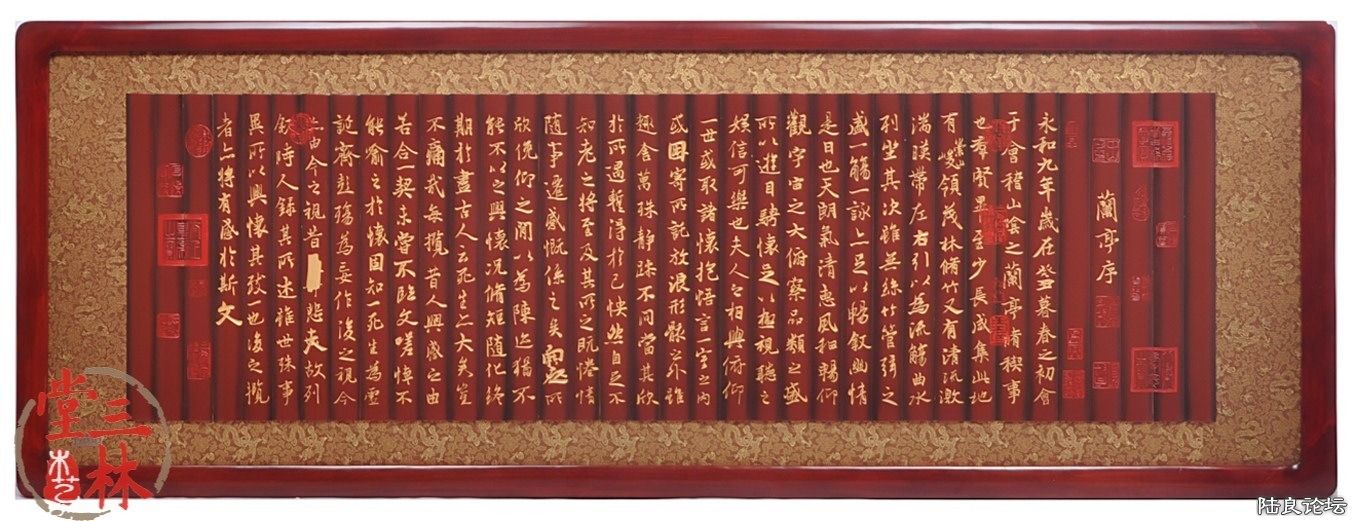 蘭亭序
永和九年歲在癸丑暮春之初會
于會稽山陰之蘭亭脩稧事
也羣賢畢至少長咸集此地
有崇山峻領茂林脩竹又有清流激
湍暎帶左右引以為流觴曲水
列坐其次雖無絲竹管弦之
盛一觴一詠亦足以暢敘幽情
是日也天朗氣清惠風和暢仰
觀宇宙之大俯察品類之盛
所以遊目騁懷足以極視聽之
娛信可樂也夫人之相與俯仰
一世或取諸懷抱悟言一室之內
或因寄所託放浪形骸之外雖
趣舍萬殊靜躁不同當其欣
於所遇蹔得於己怏然自足不
知老之將至及其所之既惓情
隨事遷感慨係之矣向之所
欣俛仰之閒以為陳迹猶不
能不以之興懷況脩短隨化終
期於盡古人云死生亦大矣豈
不痛哉每攬昔人興感之由
若合一契未嘗不臨文嗟悼不
能喻之於懷固知一死生為虛
誕齊彭殤為妄作後之視今
亦由今之視昔悲夫故列
敘時人錄其所述雖世殊事
異所以興懷其致一也後之攬
者亦將有感於斯文
三林堂
木艺
陆良论坛